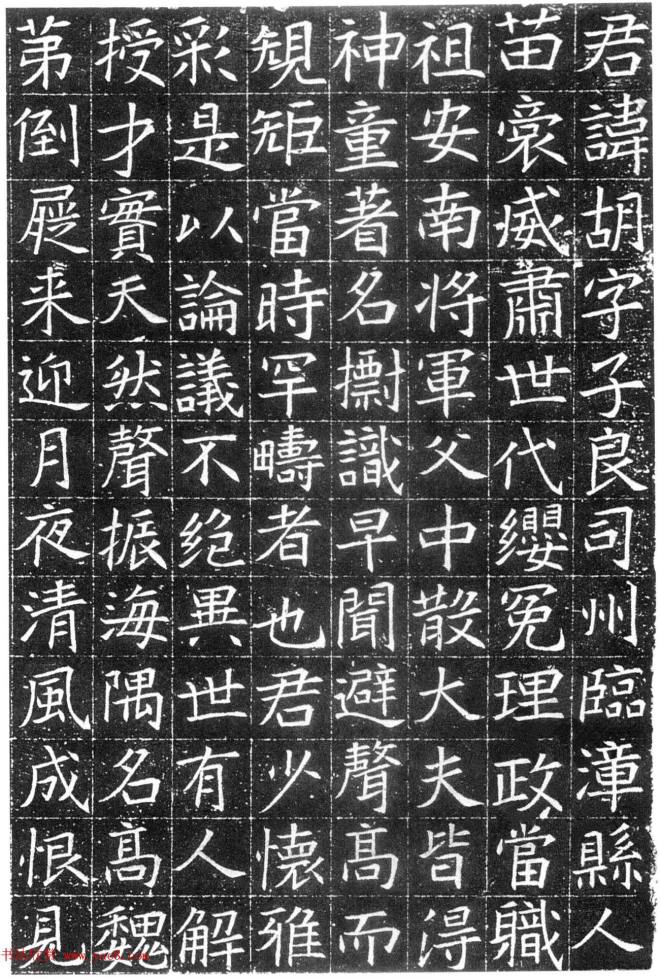 君諱胡字子良司州臨漳縣人
苗裔威肅世代纓冕理政當職
祖安南将軍父中散大夫皆淂
神童著名識早聞避聲髙而
規矩當時罕疇者也君少懐雅
彩是以論議不絶異世有人解
授才實天然聲振海隅名髙魏
苐倒屣来迎月夜清風成恨